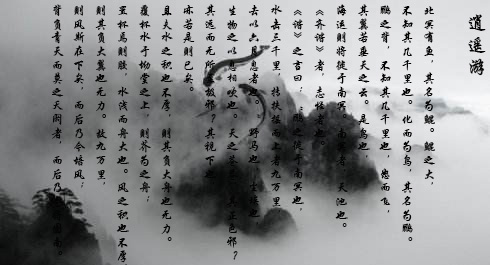 逍遥游
北冥有魚，其名為鯤。鯤之大，
不知其几千里也。化而為鳥，其名為鵬。
鵬之背，不知其几千里也，怒而飛，
其翼若垂天之云。是鳥也，
海運則將徙于南冥。南冥者，天池也。
《齊諧》者，志怪者也。
《諧》之言曰：鵬之徙于南冥也，
水击三千里，摶扶搖而上者九万里
去以六月息者也。野馬也，塵埃也
生物之以息相吹也。天之蒼蒼，其正色邪？
其遠而无所至极邪？其視下也，
亦若是則已矣。
且夫水之积也不厚，則其負大舟也无力。
覆杯水于坳堂之上，則芥為之舟；
置杯焉則膠，水淺而舟大也。風之积也不厚，
則其負大翼也无力。故九万里，
則風斯在下矣，而后乃今培風；
背負青天而莫之夭閼者，而后乃今將圖南。